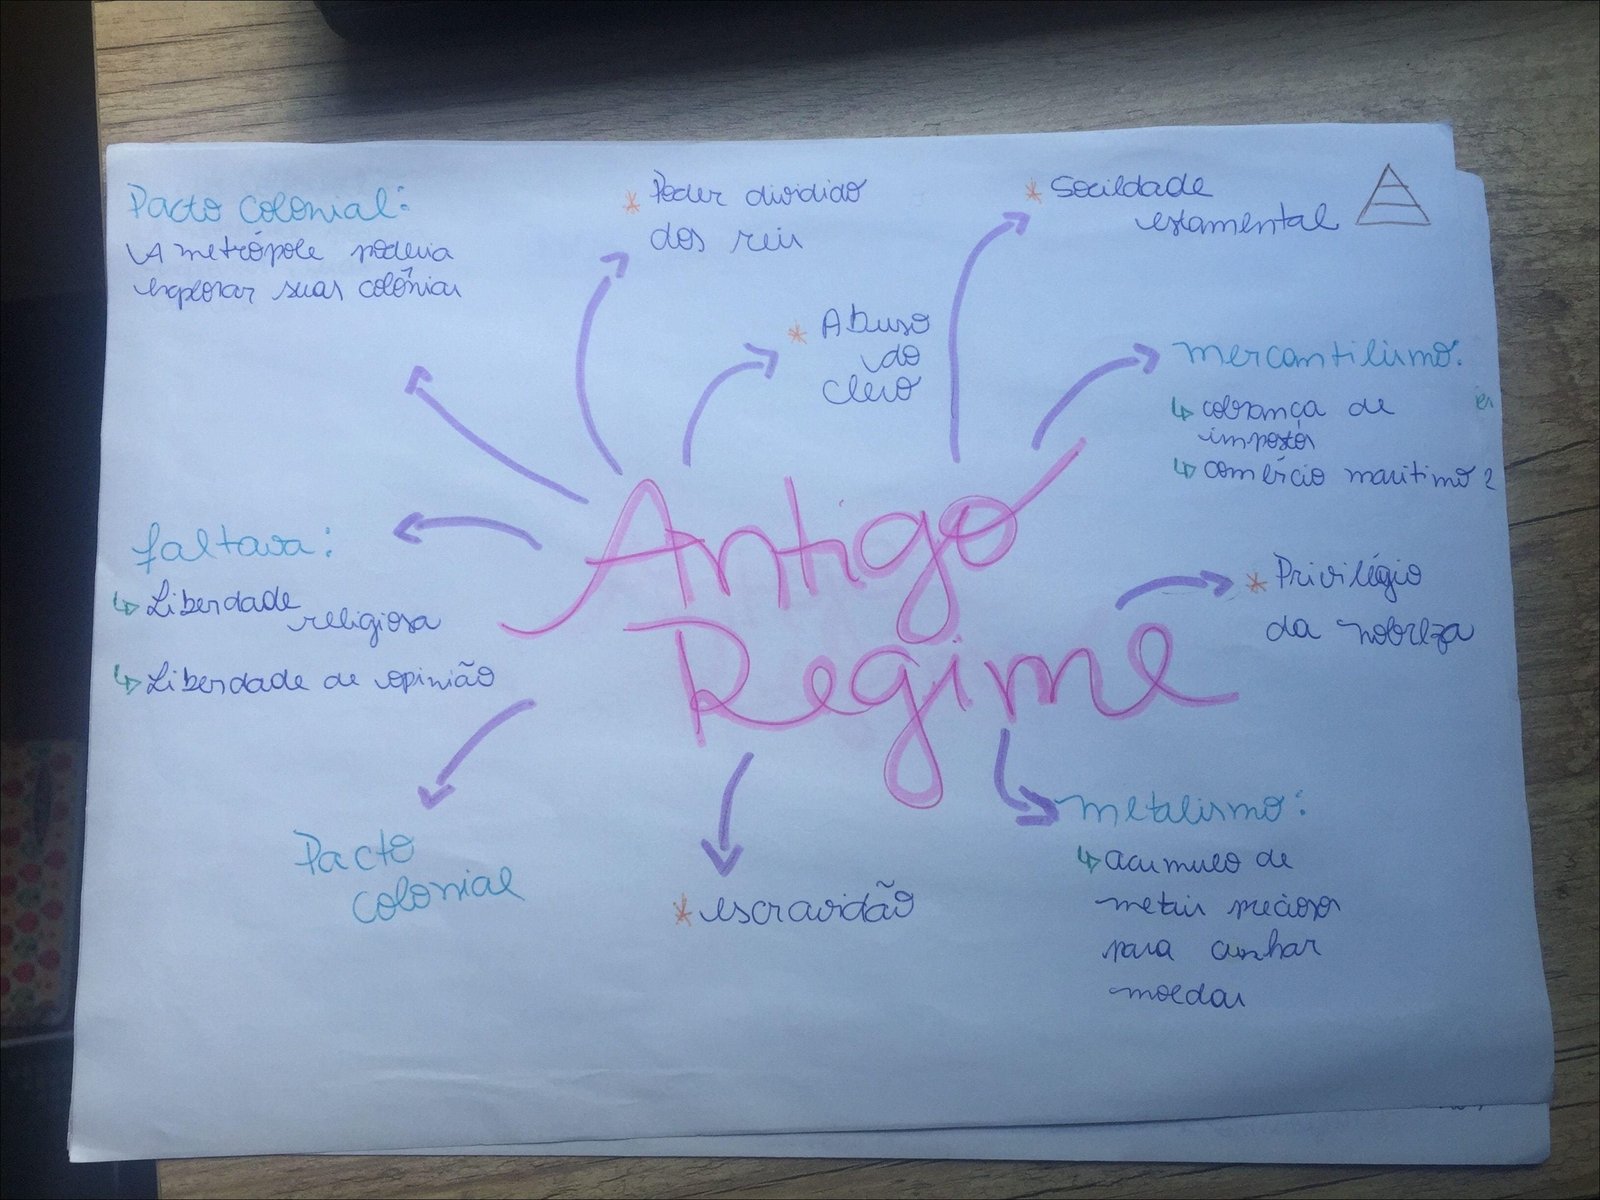 Pacto colonial:
A metrópole poderia
explorar suas colônias
* Poder dividiao
dos reis
* Socildade
estamental
* Abuso
do
Clero
mercantilismo:
↳ cobrança de
impostos
↳ comércio maritimo
faltava:
↳ Liberdade
religiosa
↳ Liberdade de opinião
Antigo
Regime
* Privilégio
da nobreza
Pacto
colonial
* escravidão
metalismo:
↳ acumulo de
metais preciosos
para cunhar
moedas